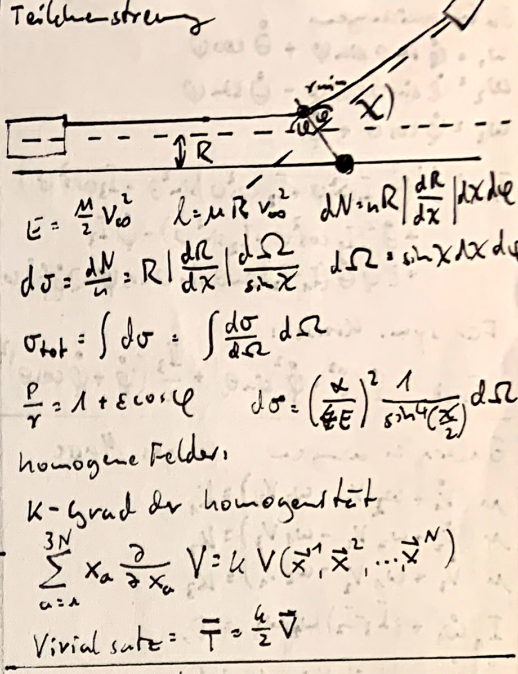 Teilchenstreuung
r min
φ φ χ
R
E = μ/2 v∞² l = μ R v∞² dN = n R |dR/dχ| dχ dφ
dσ = dN/n = R |dR/dχ| dΩ/sin χ dΩ = sin χ dχ dφ
σtot = ∫ dσ = ∫ dσ/dΩ dΩ
P/r = 1 + ε cos φ dσ = (α/4E)² 1/sin⁴(χ/2) dΩ
homogene Felder:
K - Grad der homogenität
∑_{a=1}^{3N} x_a ∂/∂x_a V = k V(x⃗¹, x⃗², ..., x⃗ᴺ)
Virial satz = T̅ = k/2 V̅